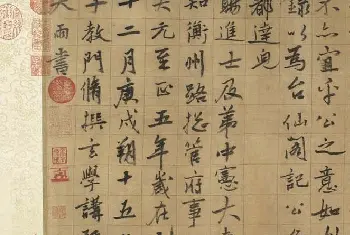 不亦宜乎公之意如
錄以為台仙閣記公
都達
賜進士及第中憲大
知衡州路摠管府事
大元至正五年歲在
十二月庚戌朔十五
子教門脩撰玄學講
天雨書